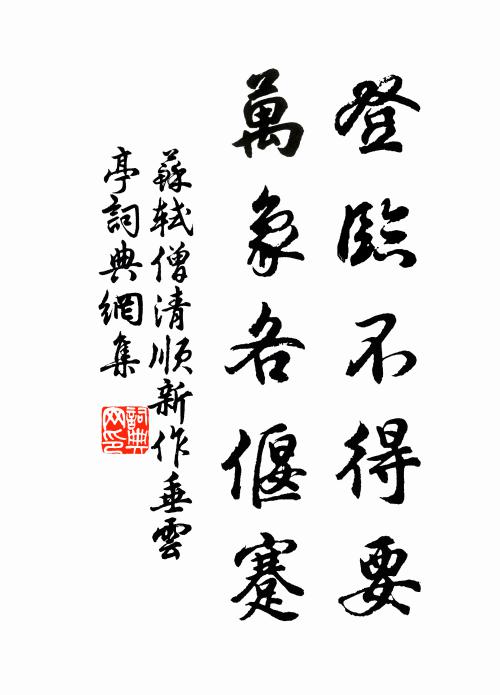 登臨不得要
萬象各偃蹇
蘇軾僧清順新作垂雲
亭詞典網集
詞典
网印